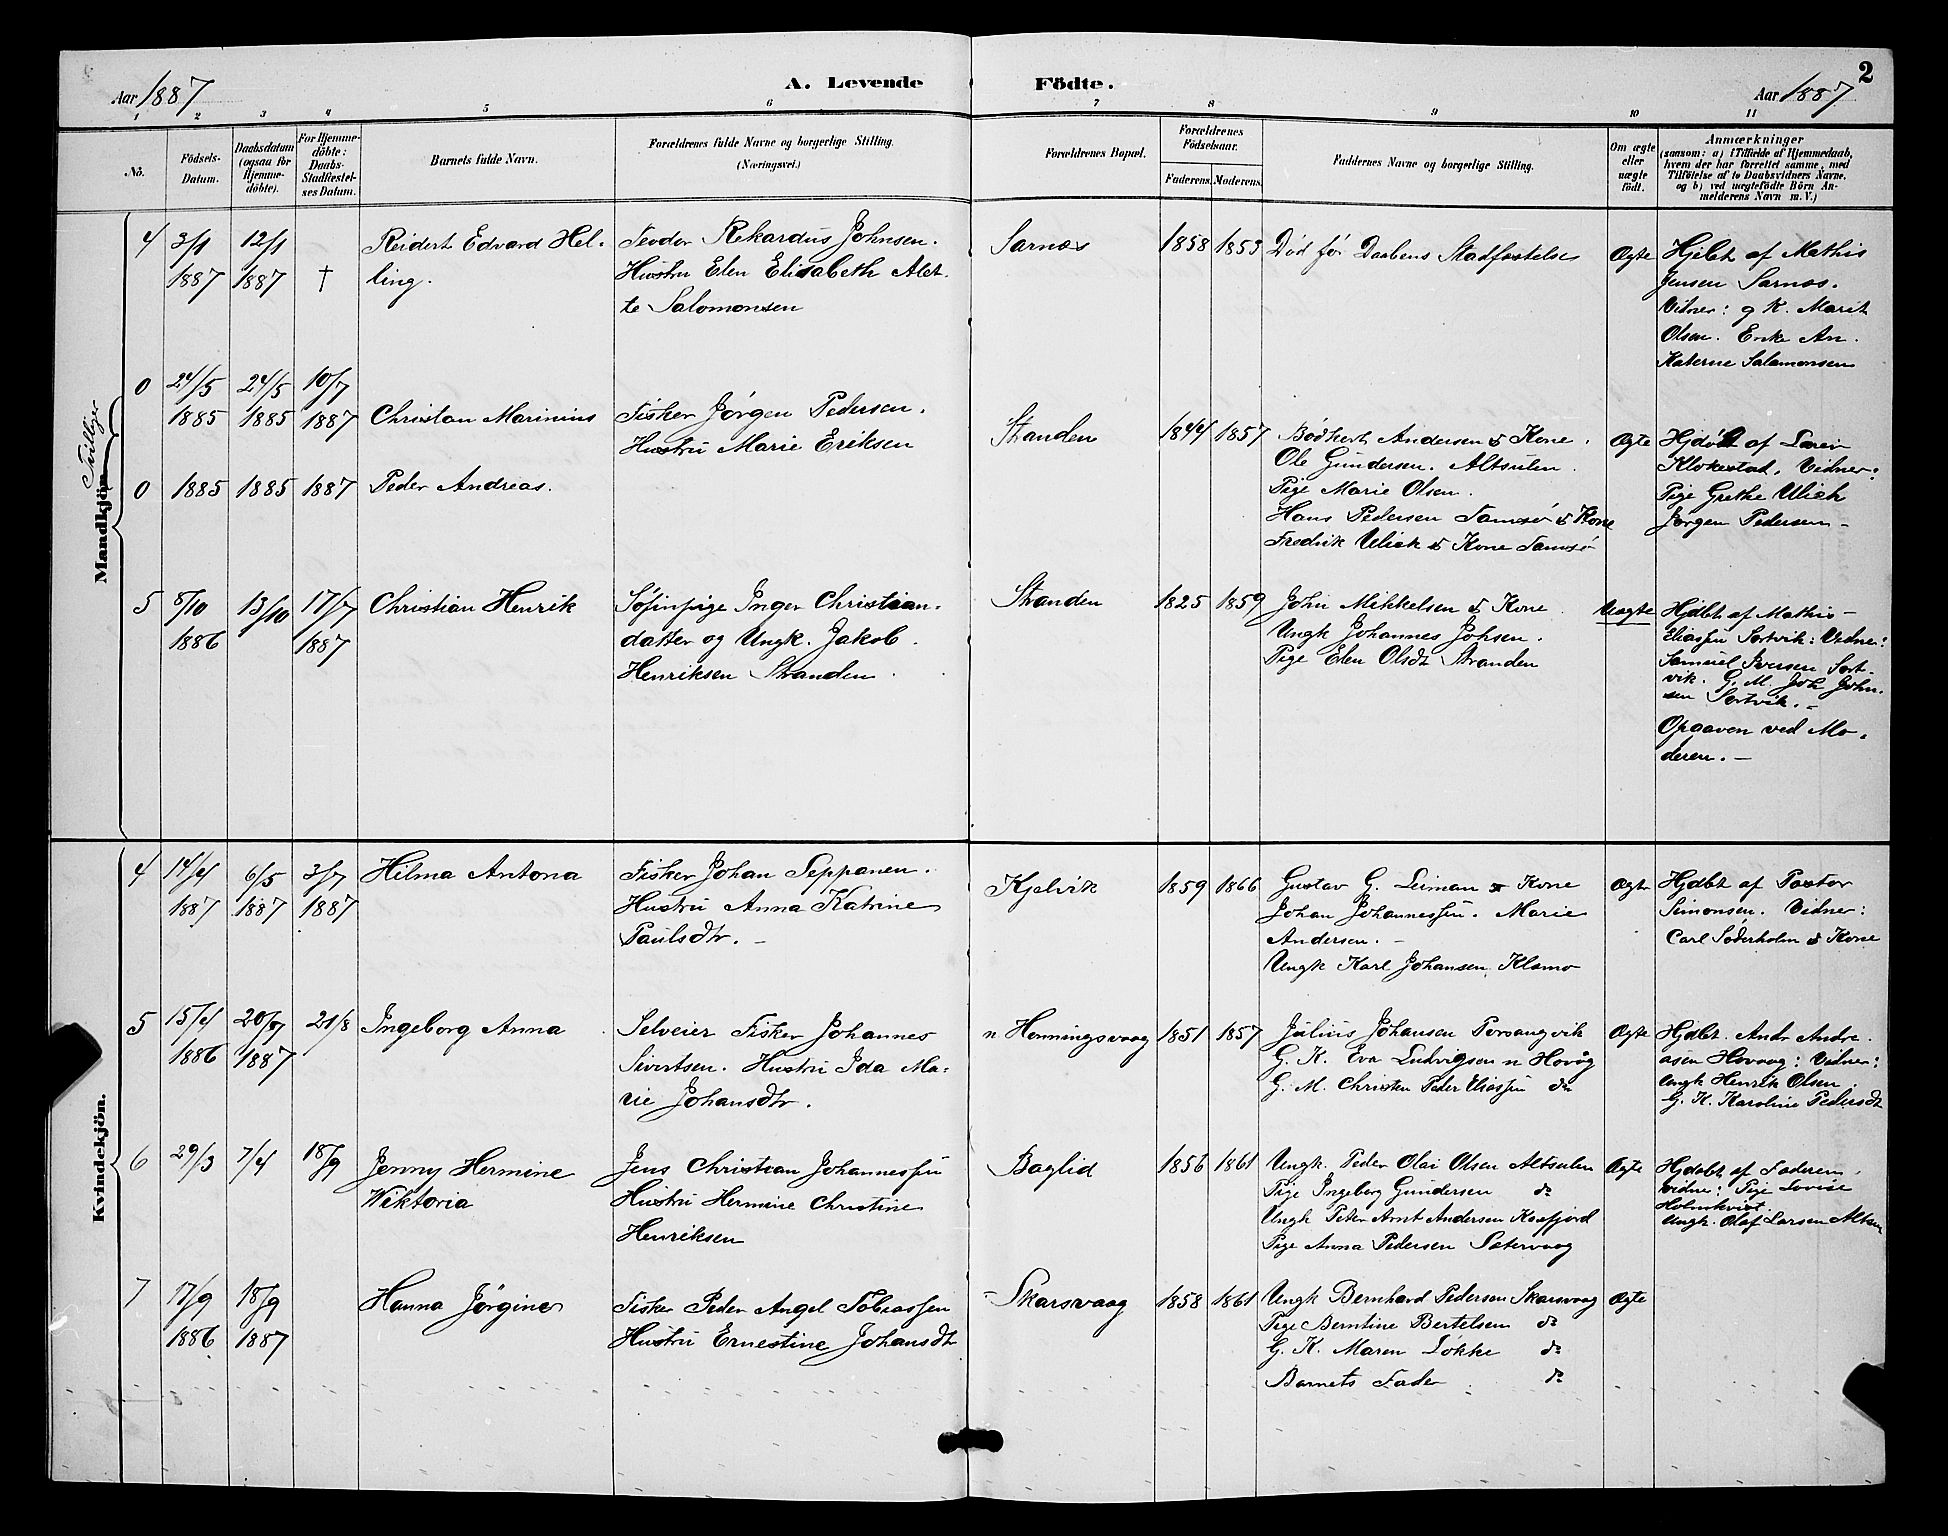 2
Aar 1887
A. Levende
Födte.
Aar 1887
1 2 3 4 5 6 7 8 9 10 11
No.
Födsels-
Datum.
Daabsdatum
(ogsaa for
Hjemme-
döbte).
For Hjemme-
döbte:
Daabs-
Stadfæstel-
ses Datum.
Barnets fulde Navn.
Forældrenes fulde Navne og borgerlige Stilling.
(Næringsvei.)
Forældrenes Bopæl.
Forældrenes
Födselsaar.
Faderens. Moderens.
Faddernes Navne og borgerlige Stilling.
Om ægte
eller
uægte
födt.
Anmærkninger
(saasom: a) i Tilfælde af Hjemmedaab,
hvem der har forrettet samme, med
Tilföielse af to Daabsvidners Navne,
og b) ved uægtefödte Börn An-
melderens Navn m. V.)
Mandkjön.
Tvillinger
4
3/1
1887
12/1
1887
†
Reidert Edvard Hel-
ling.
Teodor Rekardus Johnsen.
Hustru Elen Elisabeth Alet-
te Salomonsen
Sarnæs
1858
1853
Död før Daabens Stadfæstelse
Ægte
Hjdbt af Mathis
Jensen Sarnæs.
Vidner: g K. Marit
Olsen. Enke An.
Katerne Salamonsen
0
24/5
1885
24/5
1885
10/7
1887
Christan Marinius
Fisker Jörgen Pedersen.
Hustru Marie Eriksen
Stranden
1844
1857
Bodkert Andersen & Kone.
Ole Gundersen. Altsulen.
Pige Marie Olsen.
Hans Pedersen Samsø & Kone
Fredrik Ulick & Kone Samsø
Ægte
Hjdöbt af
Klokestad. Vidner:
Pige Grethe Ulich
Jørgen Pedersen -
0
1885
1885
1887
Peder Andreas.
5
8/10
1886
13/10
17/7
1887
Christian Henrik
Söfinpige Inger Christian-
datter og Ungk. Jakob
Henriksen Stranden.
Stranden
1825
1859
John Mikkelsen & Kone
Ungk Johannes Johsen.
Pige Elen Olsdt Stranden
Uægte
Hjdbt af Mathis
Eliassen Sortvik: Vidner:
Samuel Iversen Sort-
vik. G. M. Joh John-
sen Sortvik. -
Opgaven ved Mo-
deren. -
Kvindekjön.
4
14/4
1887
6/5
1887
3/7
1887
Hilma Antona
Fisker Johan Seppanen.
Hustru Anna Katrine
Paulsdtr. -
Kjelvik
1859
1866
Gustav G. Leiman & Kone
Johan Johannessen. Marie
Andersen. -
Ungk Karl Johansen. Klamo
Ægte
Hjdbt af Pastor
Simonsen. Vidner:
Carl Söderholm & Kone
5
15/4
1886
20/7
1887
21/8
Ingeborg Anna
Selveier Fisker Johannes
Sivertsen. Hustru Ida Ma-
rie Johansdtr.
n Honningsvaag
1851
1857
Julius Johansen Porsangvik
G. K. Eva Ludvigsen n Hovåg
G. M. Christen Peder Eliassen do
Ægte
Hjdbt. Andr Andre-
asen Hovaag: Vidner:
Ungk Henrik Olsen.
G. K. Karoline Pedersdt
6
29/3
7/4
18/9
Jenny Hermine
Wiktoria
Jens Christian Johannessen
Hustru Hermine Christine
Henriksen
Baglid
1856
1861
Ungk. Peder Olai Olsen Altsulen
Pige Ingeborg Gundersen do
Ungk Peter Arnt Andersen Kaafjord
Pige Anna Pedersen Sætervaag
Ægte
Hjdöbt af Faderen.
Vidne: Pige Lovise
Holmkvist.
Ungk. Olaf Larsen Altsen
7
17/9
1886
18/9
1887
Hanna Jörgine
Fisker Peder Angel Tobiassen
Hustru Ernestine Johansdtr
Skarsvaag
1858
1861
Ungk Bernhard Pedersen Skarsvaag
Pige Berntine Bertelsen do
G. K. Maren Løkke do
Barnets Fader do
Ægte